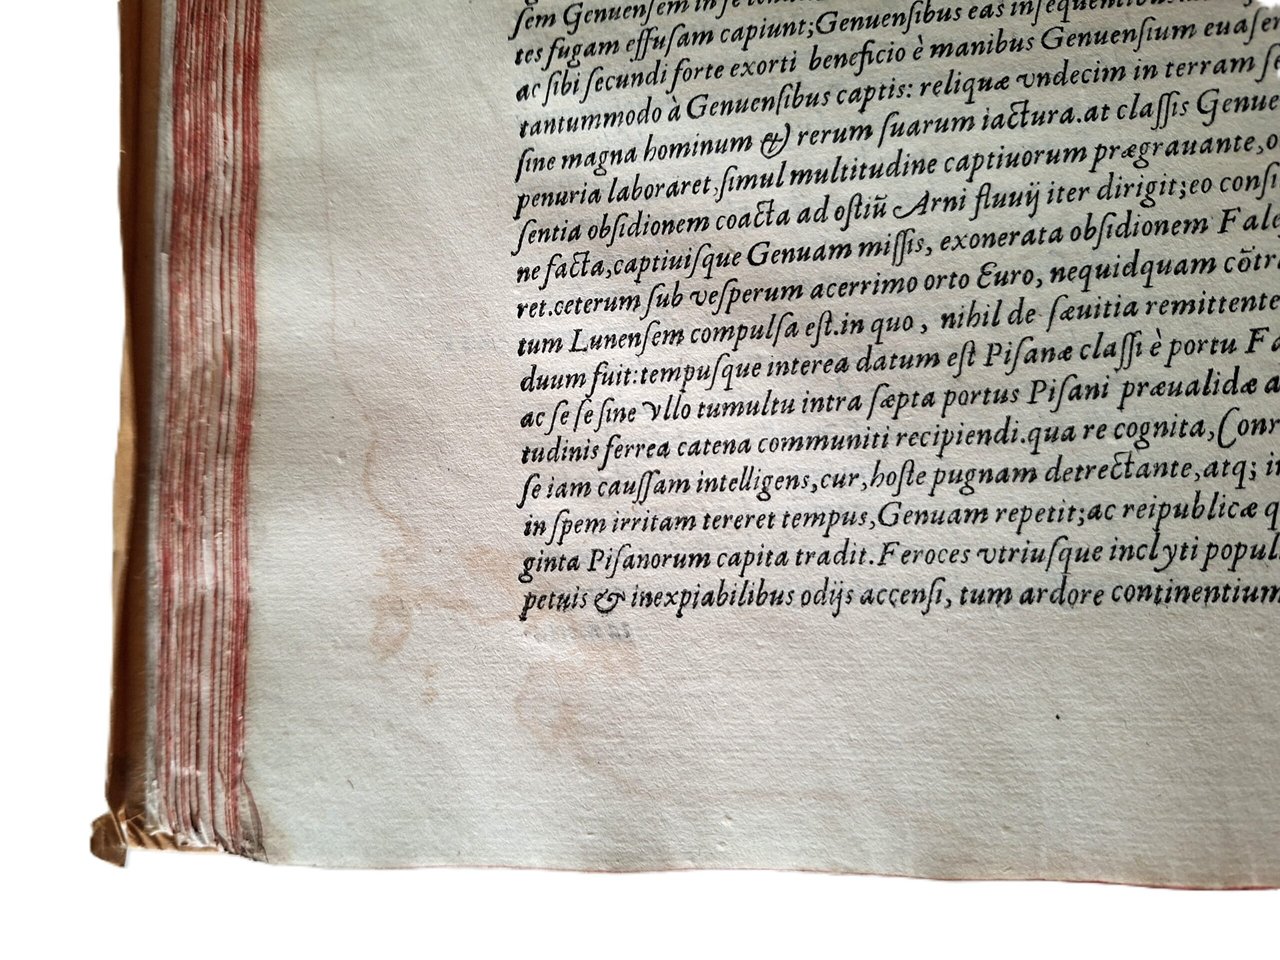 ſem Genuenſem in ſe
tes fugam effuſam capiunt; Genuenſibus eas inſequentibus
ac ſibi ſecundi forte exorti beneficio è manibus Genuenſium euaſer
tantummodo à Genuenſibus captis: reliquæ vndecim in terram ſe
ſine magna hominum & rerum ſuarum iactura.at claſſis Genue
penuria laboraret, ſimul multitudine captiuorum prægrauante,
ſentia obſidionem coacta ad oſtiū Arni fluuij iter dirigit; eo conſi
ne facta, captiuiſque Genuam miſſis, exonerata obſidionem Fal
ret.ceterum ſub veſperum acerrimo orto Euro, nequidquam cōtr
tum Lunenſem compulſa eſt.in quo, nihil de ſæuitia remittente
duum fuit: tempuſque interea datum eſt Piſanæ claſſi è portu Fa
ac ſe ſe ſine vllo tumultu intra ſæpta portus Piſani præualidæ a
tudinis ferrea catena communiti recipiendi.qua re cognita, Conr
ſe iam cauſſam intelligens, cur, hoſte pugnam detrectante, atq; i
in ſpem irritam tereret tempus, Genuam repetit; ac reipublicæ q
ginta Piſanorum capita tradit. Feroces vtriuſque inclyti popul
petuis & inexpiabilibus odijs accenſi, tum ardore continentium